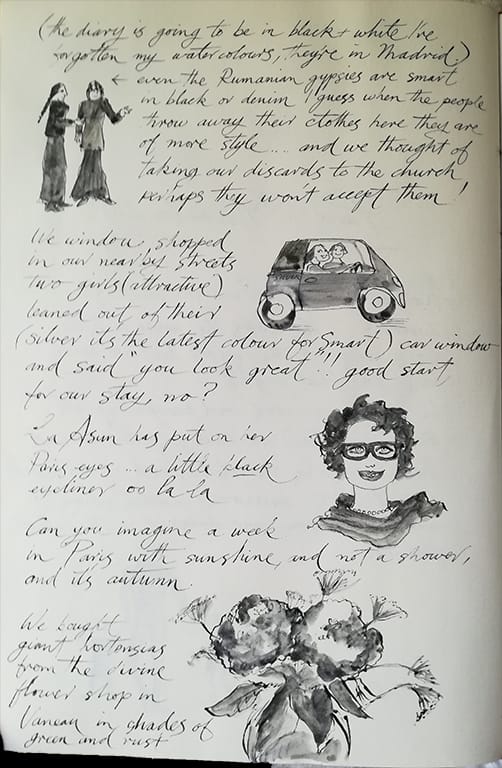 (the diary is going to be in black + white I've
forgotten my watercolours, they're in Madrid)
← even the Rumanian gypsies are smart
in black or denim I guess when the people
throw away their clothes here they are
of more style.... and we thought of
taking our discards to the church
perhaps they won't accept them!
We window shopped
in our nearby streets
two girls (attractive)
leaned out of their
(silver its the latest colour for Smart) car window
and said "you look great"!!! good start
for our stay, no?
La Asun has put on her
Paris eyes ... a little black
eyeliner oo la la
Can you imagine a week
in Paris with sunshine, and not a shower,
and it's autumn.
We bought
giant hortensias
from the divine
flower shop in
Vaneau in shades of
green and rust